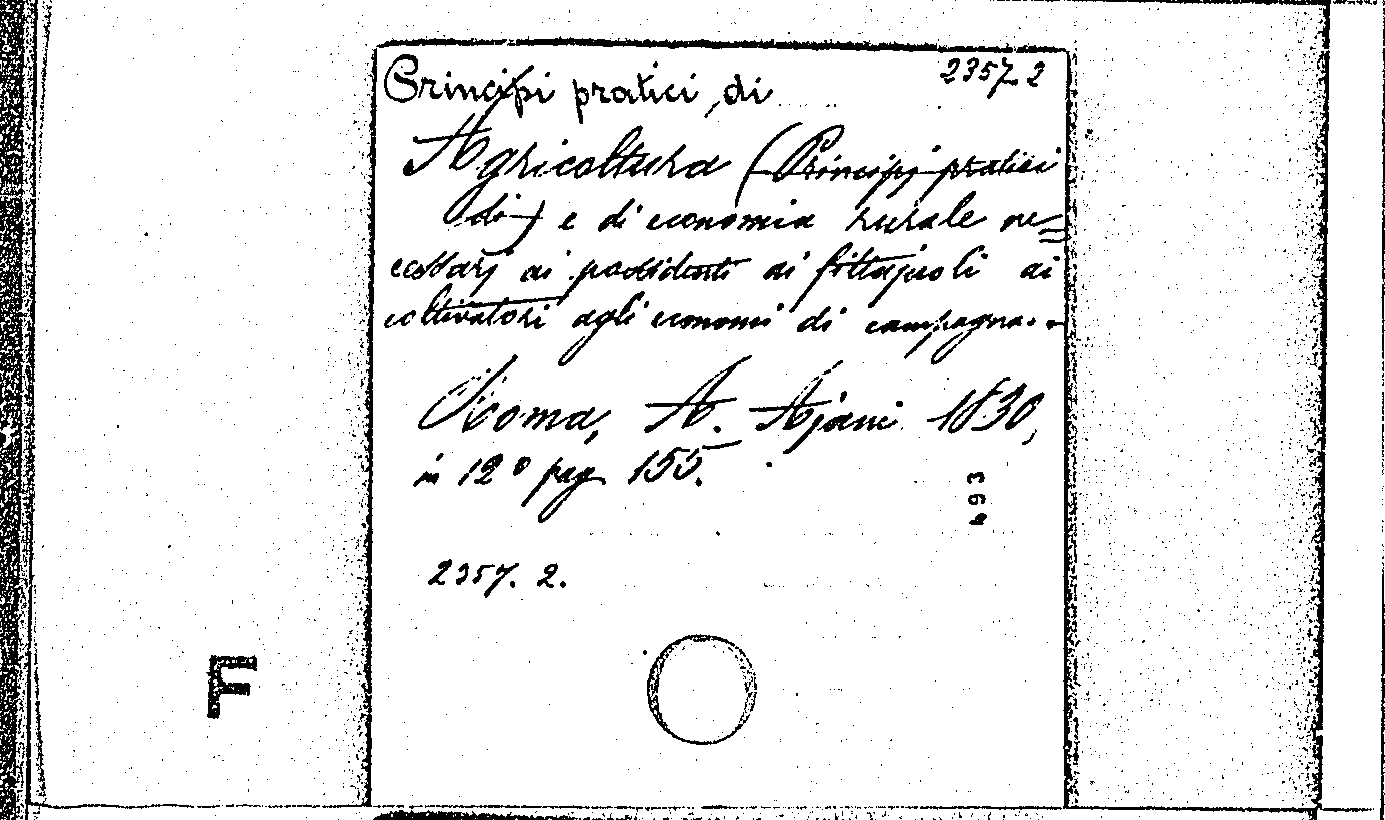 2357.2
Principi pratici di
Agricoltura (Principj pratici
di) e di economia rurale ne=
cessarj ai possidenti ai fittajuoli ai
coltivatori agli economi di campagna. -
Roma, A. Ajani 1830,
in 12° pag. 155.
693
2357. 2.
F